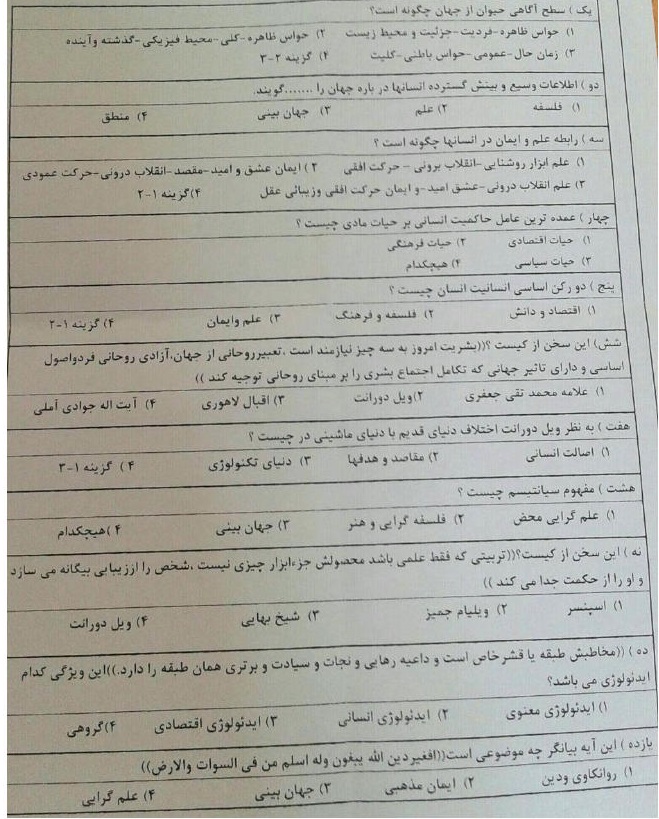 یک ) سطح آگاهی حیوان از جهان چگونه است؟
۱) حواس ظاهره-فردیت-جزئیت و محیط زیست ۲) حواس ظاهره-کلی-محیط فیزیکی-گذشته وآینده
۳) زمان حال-عمومی-حواس باطنی-کلیت ۴) گزینه ۲-۳
دو ) اطلاعات وسیع و بینش گسترده انسانها در باره جهان را .......گویند.
۱) فلسفه ۲) علم ۳) جهان بینی ۴) منطق
سه ) رابطه علم و ایمان در انسانها چگونه است ؟
۱) علم ابزار روشنایی-انقلاب برونی - حرکت افقی ۲) ایمان عشق و امید-مقصد-انقلاب درونی-حرکت عمودی
۳) علم انقلاب درونی-عشق امید-و ایمان حرکت افقی وزیبائی عقل ۴)گزینه ۱-۲
چهار ) عمده ترین عامل حاکمیت انسانی بر حیات مادی چیست ؟
۱) حیات اقتصادی ۲) حیات فرهنگی
۳) حیات سیاسی ۴) هیچکدام
پنج ) دو رکن اساسی انسانیت انسان چیست ؟
۱) اقتصاد و دانش ۲) فلسفه و فرهنگ ۳) علم وایمان ۴) گزینه ۱-۲
شش) این سخن از کیست ؟((بشریت امروز به سه چیز نیازمند است ،تعبیرروحانی از جهان،آزادی روحانی فردواصول
اساسی و دارای تاثیر جهانی که تکامل اجتماع بشری را بر مبنای روحانی توجیه کند ))
۱) علامه محمد تقی جعفری ۲)ویل دورانت ۳) اقبال لاهوری ۴) آیت اله جوادی آملی
هفت ) به نظر ویل دورانت اختلاف دنیای قدیم با دنیای ماشینی در چیست ؟
۱) اصالت انسانی ۲) مقاصد و هدفها ۳) دنیای تکنولوژی ۴ ) گزینه ۱-۳
هشت ) مفهوم سیانتیسم چیست ؟
۱) علم گرایی محض ۲) فلسفه گرایی و هنر ۳) جهان بینی ۴ )هیچکدام
نه ) این سخن از کیست؟((تربیتی که فقط علمی باشد محصولش جزءابزار چیزی نیست ،شخص را اززیبایی بیگانه می سازد
و او را از حکمت جدا می کند ))
۱) اسپنسر ۲) ویلیام جمیز ۳) شیخ بهایی ۴) ویل دورانت
ده ) ((مخاطبش طبقه یا قشرخاص است و داعیه رهایی و نجات و سیادت و برتری همان طبقه را دارد.))این ویژگی کدام
ایدئولوژی می باشد؟
۱) ایدئولوژی معنوی ۲) ایدئولوژی انسانی ۳) ایدئولوژی اقتصادی ۴)گروهی
یازده ) این آیه بیانگر چه موضوعی است((افغیردین الله یبغون وله اسلم من فی السوات والارض))
۱) روانکاوی ودین ۲) ایمان مذهبی ۳) جهان بینی ۴) علم گرایی